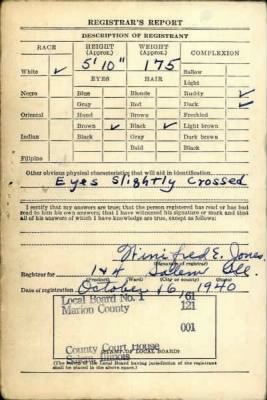 REGISTRAR'S REPORT
DESCRIPTION OF REGISTRANT
RACE HEIGHT (Approx.) WEIGHT (Approx.) COMPLEXION
5' 10" 175 Sallow
White ✓ EYES HAIR Light
Ruddy ✓
Negro Blue Blonde Dark ✓
Gray Red Freckled
Oriental Hazel Brown Light brown
Brown ✓ Black ✓ Dark brown
Indian Black Gray Black
Bald
Filipino
Other obvious physical characteristics that will aid in identification
Eyes Slightly Crossed
I certify that my answers are true; that the person registered has read or has had
read to him his own answers; that I have witnessed his signature or mark and that
all of his answers of which I have knowledge are true, except as follows:
Winifred E. Jones
(Signature of registrar)
Registrar for 1 & 4 Salem Ill.
(Precinct) (Ward) (City or county) (State)
Date of registration October 16, 1940
Local Board No. 1 61
Marion County 121
001
County Court House
Salem, Illinois
(STAMP OF LOCAL BOARD)
(The stamp of the Local Board having jurisdiction of the registrant
shall be placed in the above space.)